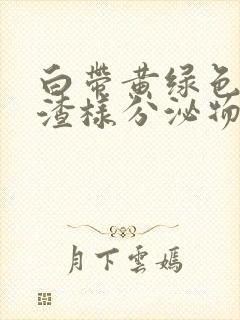 白带黄绿色
渣样分泌物
月下雲嫣